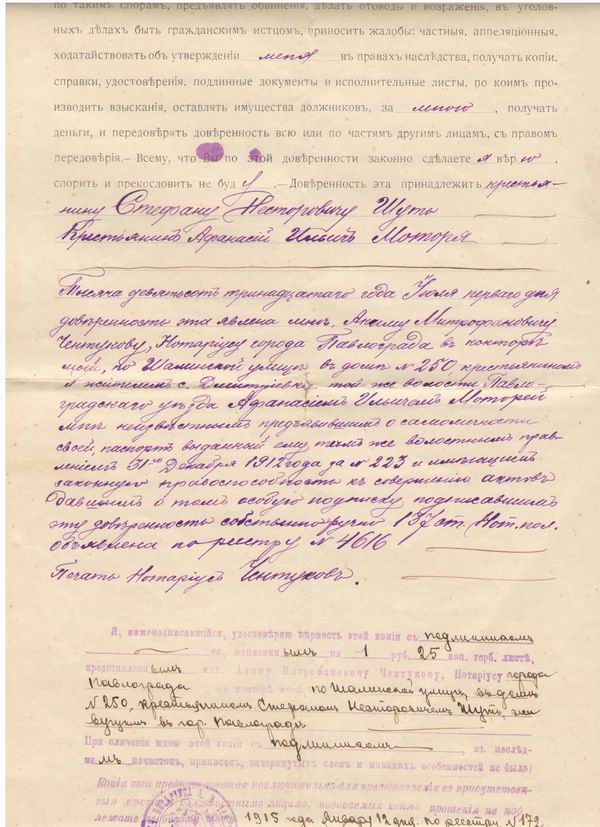 по такимъ спорамъ, предъявлять обвиненія, дѣлать отводы и возраженія, въ уголов-
ныхъ дѣлахъ быть гражданскимъ истцомъ, приносить жалобы: частныя, аппеляціонныя,
ходатайствовать объ утвержденіи меня въ правахъ наслѣдства, получать копіи,
справки, удостовѣренія, подлинные документы и исполнительные листы, по коимъ про-
изводить взысканія, оставлять имущества должниковъ, за мною, получать
деньги, и передовѣрять довѣренность всю или по частямъ другимъ лицамъ, съ правомъ
передовѣрія.— Всему, что Вы по этой довѣренности законно сдѣлаете я вѣрю,
спорить и прекословить не буду.—Довѣренность эта принадлежитъ крестья-
нину Стефану Несторовичу Шуть
Крестьянинъ Афанасій Ильичъ Моторя
Тысяча девятьсотъ тринадцатаго года Іюля перваго дня
довѣренность эта явлена мнѣ, Акиму Митрофановичу
Чентукову, Нотаріусу города Павлограда въ конторѣ
моей, по Шалинской улицѣ въ домѣ № 250, крестьяниномъ
и жителемъ с. Дмитріевки той же волости Павло-
градскаго уѣзда Афанасіемъ Ильичемъ Моторей
мнѣ неизвѣстнымъ предъявившимъ о самоличности
своей, паспортъ выданный ему тѣмъ же волостнымъ прав-
леніемъ 31го Декабря 1912 года за № 223 и имѣющимъ
законную правоспособность къ совершенію актовъ
давшимъ о томъ особую подписку подписавшимъ
эту довѣренность собственноручно 137 ст. Нот. пол.
объявлена по реестру № 4616
Печать Нотаріусъ Чентуковъ.
Я, нижеподписавшійся, удостовѣряю вѣрность этой копіи съ подлинникомъ
ея, написаннымъ на 1 руб. 25 коп. герб. листѣ,
представленнымъ мнѣ, Акиму Митрофановичу Чентукову, Нотаріусу города
Павлограда, въ конторѣ моей, по Шалинской улицѣ въ домѣ
№ 250, крестьяниномъ Стефаномъ Несторовичемъ Шуть, жи
вущимъ въ гор. Павлоградѣ
При сличеніи мною этой копіи съ подлинникомъ, въ послѣд-
немъ почистокъ, приписокъ, зачеркнутыхъ словъ и никакихъ особенностей не было;
Копія эта предназначается исключительно для представленія въ присутствен-
лежатъ
1915 года Января 12 дня. по реестру № 172